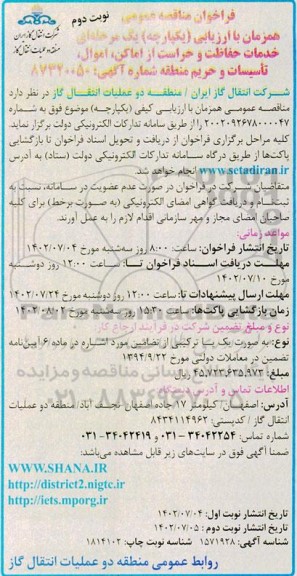 نوبت دوم
شرکت انتقال گاز ایران
منطقه دو عملیات انتقال گاز
فراخوان مناقصه عمومی
همزمان با ارزیابی (یکپارچه) یک مرحله‌ای
خدمات حفاظت و حراست از اماکن، اموال،
تأسیسات و حریم منطقه شماره آگهی: ۸۷۳۲۰۰۵۰
شرکت انتقال گاز ایران / منطقه دو عملیات انتقال گاز در نظر دارد
مناقصه عمومی همزمان با ارزیابی کیفی (یکپارچه) موضوع فوق به شماره
۲۰۰۲۰۹۲۶۷۸۰۰۰۰۴۷ را از طریق سامانه تدارکات الکترونیکی دولت برگزار نماید.
کلیه مراحل برگزاری فراخوان از دریافت و تحویل اسناد فراخوان تا بازگشایی
پاکت‌ها از طریق درگاه سامانه تدارکات الکترونیکی دولت (ستاد) به آدرس
www.setadiran.ir انجام خواهد شد.
متقاضیان شرکت در فراخوان در صورت عدم عضویت در سامانه، نسبت به
ثبت‌نام و دریافت گواهی امضای الکترونیکی (به صورت برخط) برای کلیه
صاحبان امضای مجاز و مهر سازمانی اقدام لازم را به عمل آورند.
مواعد زمانی:
تاریخ انتشار فراخوان: ساعت: ۸:۰۰ روز سه‌شنبه مورخ ۱۴۰۲/۰۷/۰۴
مهلت دریافت اسناد فراخوان تا: ساعت ۱۲:۰۰ روز دوشنبه
مورخ ۱۴۰۲/۰۷/۱۰
مهلت ارسال پیشنهادات تا: ساعت ۱۲:۰۰ روز دوشنبه مورخ ۱۴۰۲/۰۷/۲۴
زمان بازگشایی پاکت‌ها: ساعت ۱۵:۳۰ روز سه‌شنبه مورخ ۱۴۰۲/۰۸/۰۲
نوع و مبلغ تضمین شرکت در فرآیند ارجاع کار:
نوع: به صورت یک یا ترکیبی از تضامین مورد اشاره در ماده ۶ آیین‌نامه
تضمین در معاملات دولتی مورخ ۱۳۹۴/۹/۲۲
مبلغ: ۴۵,۷۲۳,۶۳۵,۹۷۳ ریال
اطلاعات تماس و آدرس دستگاه
آدرس: اصفهان / کیلومتر ۱۷ جاده اصفهان- نجف آباد/ منطقه دو عملیات
انتقال گاز / کدپستی: ۸۴۳۴۱۱۴۹۶۲
شماره تماس: ۳۴۰۴۲۲۵۴-۰۳۱ و ۳۴۰۴۲۴۱۹-۰۳۱
ضمنا آگهی فوق در سایت‌های زیر قابل مشاهده می‌باشد:
WWW.SHANA.IR
http://district2.nigtc.ir
http://iets.mporg.ir
تاریخ انتشار نوبت اول: ۱۴۰۲/۰۷/۰۴
تاریخ انتشار نوبت دوم: ۱۴۰۲/۰۷/۰۵
شناسه آگهی: ۱۵۷۱۹۲۸ شناسه نوبت چاپ: ۱۸۱۴۱۰۲
روابط عمومی منطقه دو عملیات انتقال گاز